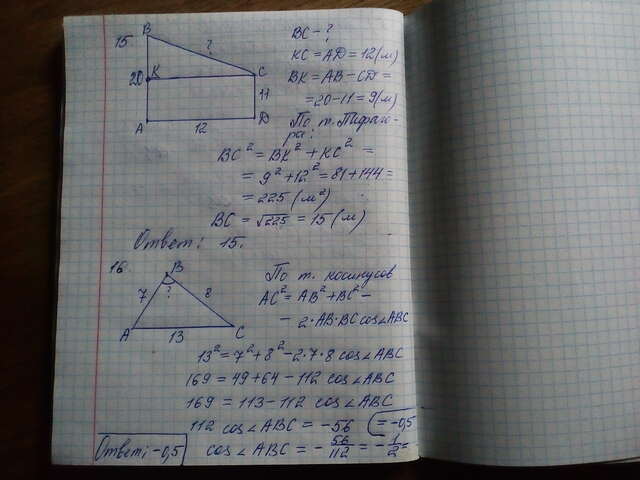 15.
B
?
20
K
C
11
A
12
D
BC - ?
KC = AD = 12 (м)
BK = AB - CD =
= 20 - 11 = 9 (м)
По т. Пифаго-
ра:
BC² = BK² + KC² =
= 9² + 12² = 81 + 144 =
= 225 (м²)
BC = √225 = 15 (м)
Ответ: 15.
16.
B
7
?
8
A
13
C
По т. косинусов
AC² = AB² + BC² -
- 2·AB·BC cos∠ABC
13² = 7² + 8² - 2·7·8 cos∠ABC
169 = 49 + 64 - 112 cos∠ABC
169 = 113 - 112 cos∠ABC
112 cos∠ABC = -56
cos∠ABC = -56/112 = -1/2 =
= -0,5
Ответ: -0,5